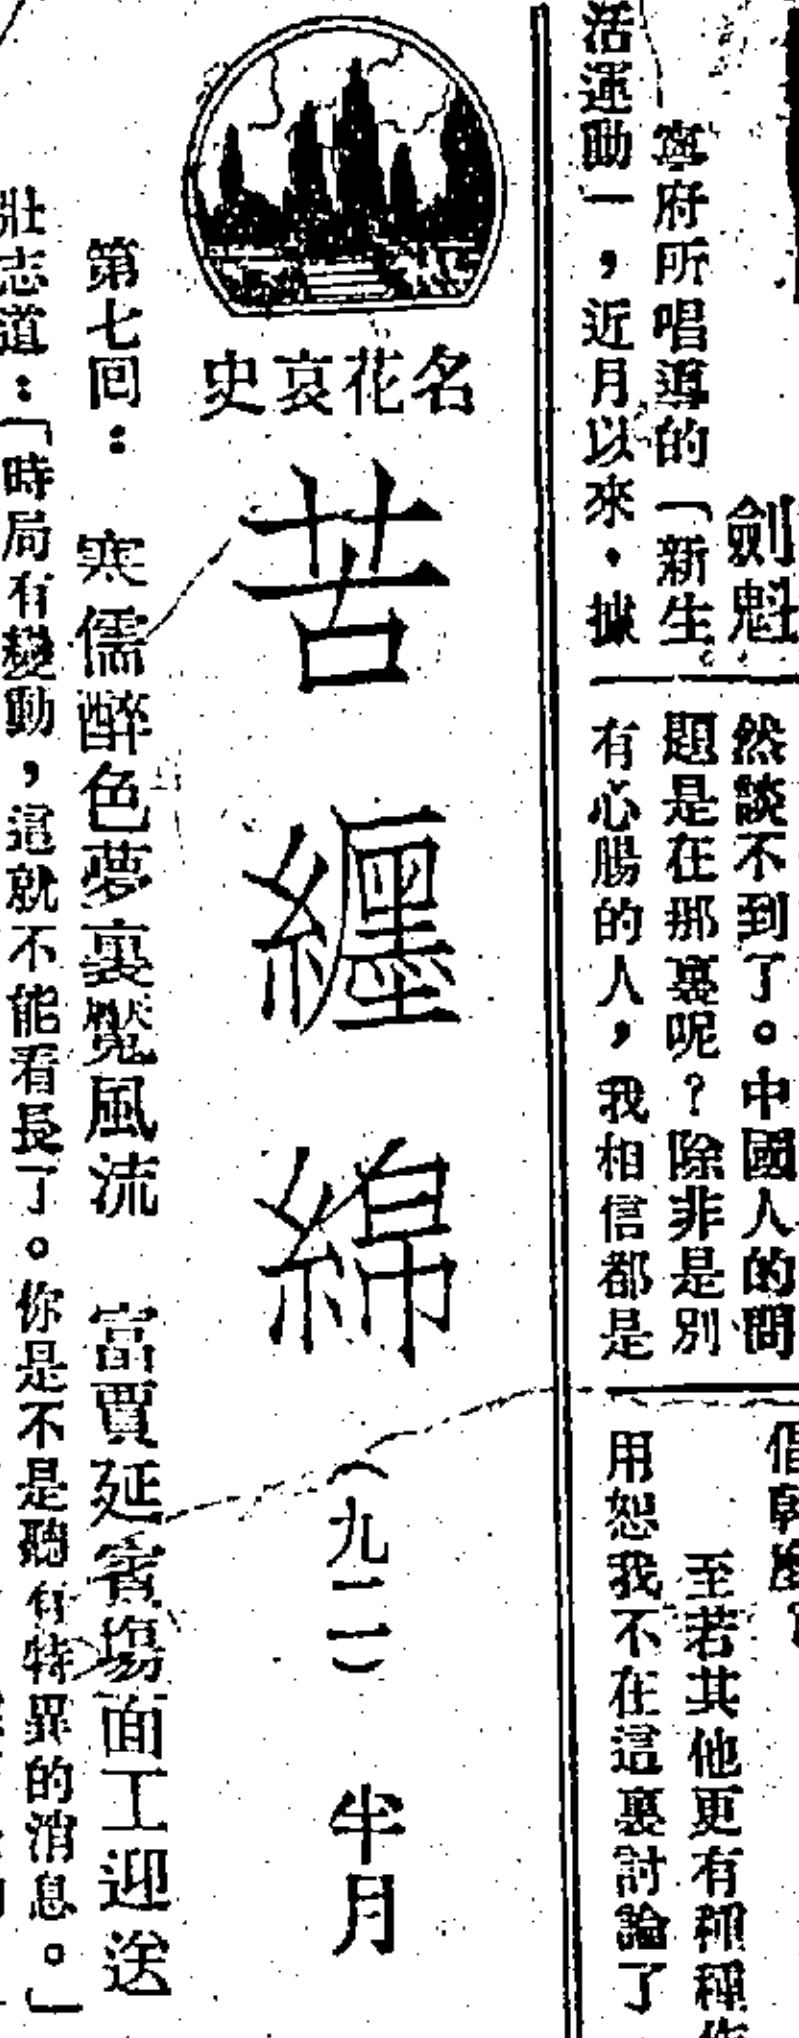 劍魁
寧府所唱導的「新生
活運動一，近月以來，據
然談不到了。中國人的問
題是在那裏呢？除非是別
有心腸的人，我相信都是
至若其他更有種種
用恕我不在這裏討論了
名花哀史
苦纏綿
（九二） 半月
第七回： 寒儒醉色夢裏覽風流 富賈延賓塲面工迎送
壯志道：「時局有變動，這就不能看長了。你是不是聽有特異的消息。」